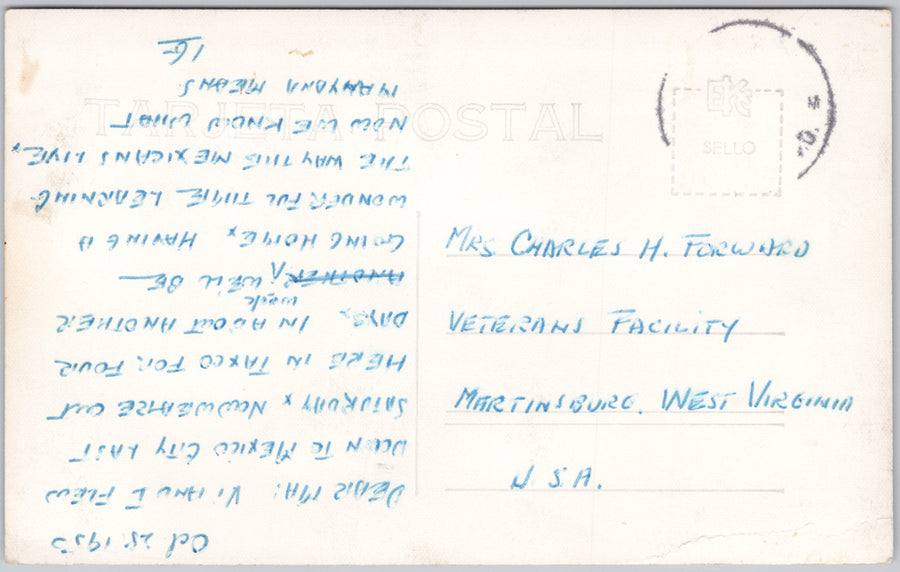 Oct 28, 195
DEAR MA: VI AND I FLEW
DOWN TO MEXICO CITY LAST
SATURDAY x NOW WE ARE OUT
HERE IN TAXCO FOR FOUR
DAYS x IN ABOUT ANOTHER
week
ANOTHER WE'LL BE
GOING HOME x HAVING A
WONDERFUL TIME LEARNING
THE WAY THE MEXICANS LIVE x
NOW WE KNOW WHAT
MANYANA MEANS
TARJETA POSTAL
SELLO
MRS CHARLES H. FORWARD
VETERANS FACILITY
MARTINSBURG, WEST VIRGINIA
U.S.A.